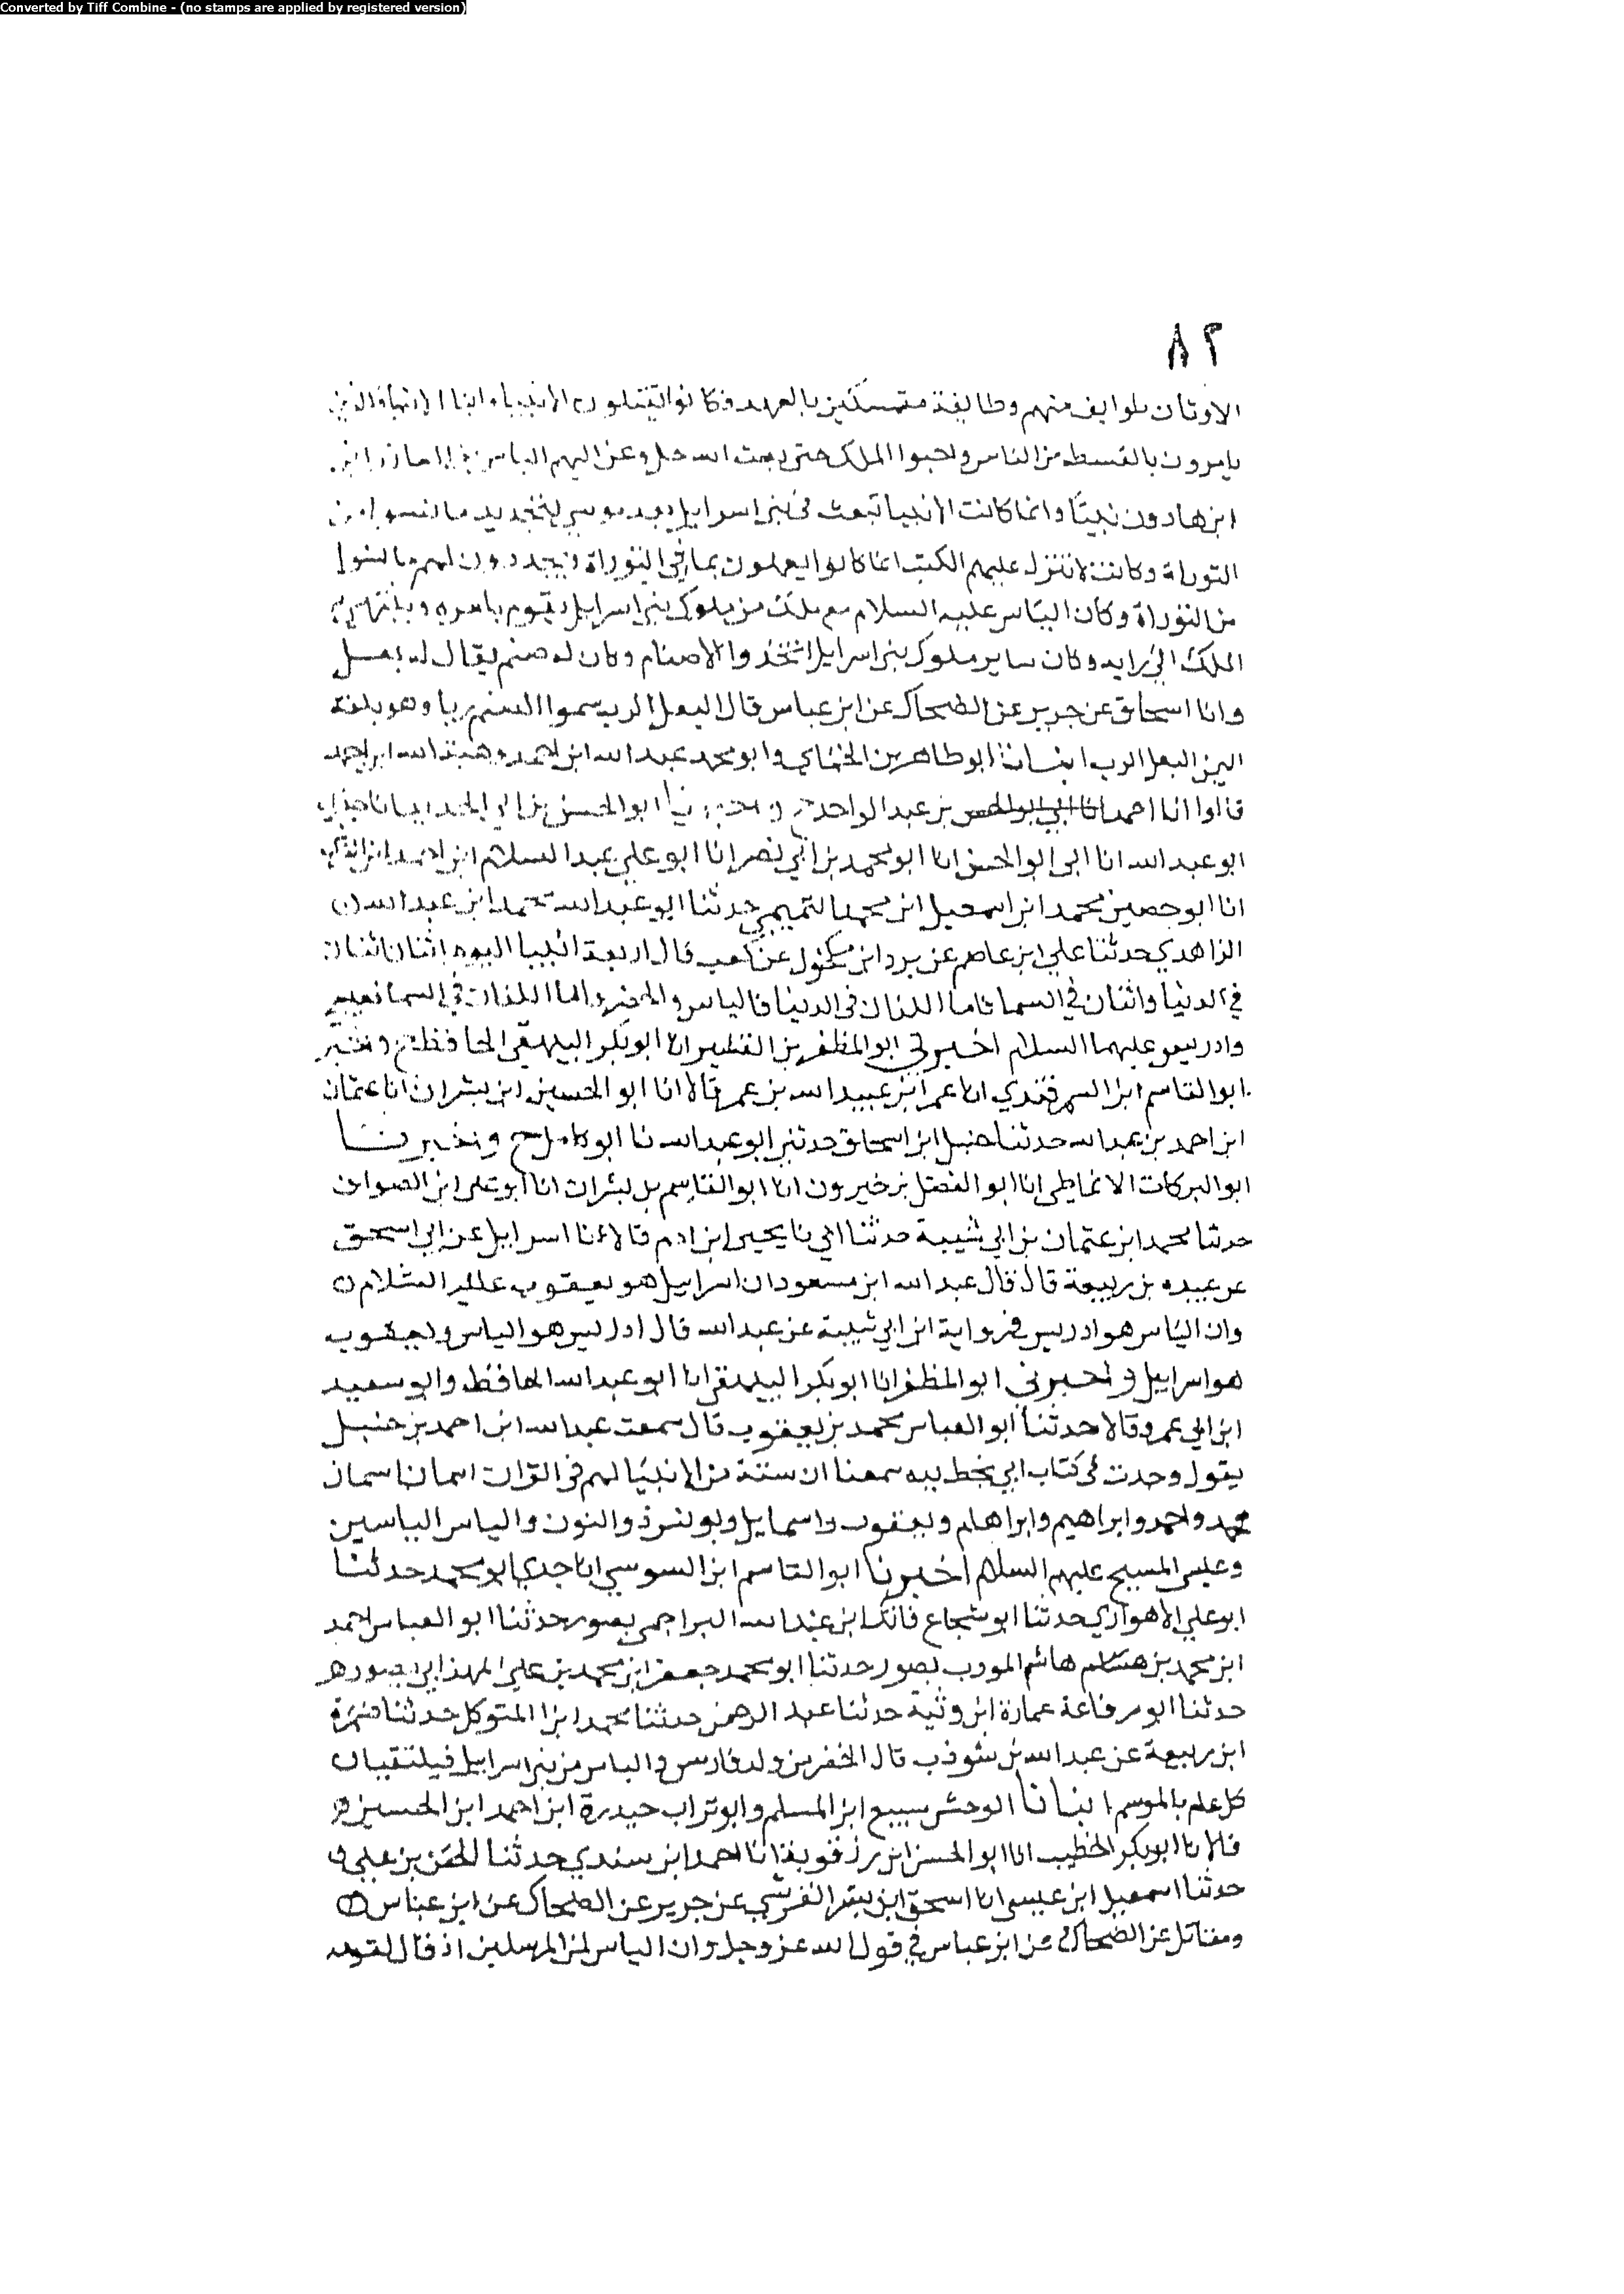 Converted by Tiff Combine - (no stamps are applied by registered version)
٨٢
الاوثان طوايف منهم وطايفة متمسكين بالعهد وكانوا يقتلون الانبياء وابنا الانبيا والذين
يامرون بالقسط من الناس ولحبوا الملك حتى بعث الله جل وعز اليهم الياس
ابن هادون نبيًا وانما كانت الانبيا تبعث في بني اسرايل بعد موسى بتجديد ما نسوا من
التوراة وكانت لا تنزل عليهم الكتب انما كانوا يعملون بما في التوراة ويجددون لهم ما نسوا
من التوراة وكان الياس عليه السلام مع ملك من ملوك بني اسرايل يقوم بامره وينتهي
الملك الى رايه وكان ساير ملوك بني اسرايل اتخذوا الاصنام وكان له صنم يقال له بعل
وانا اسحاق عن جرير عن الضحاك عن ابن عباس قال البعل الرب سموا الصنم ربا وهو بلغة
اليمن البعل الرب انبانا ابو طاهر بن الحنائي وابو محمد عبد الله ابن احمد وهبة الله ابن احمد
قالوا انا احمد بن عبد الواحد ح واخبرنا ابو الحسن بن ابي الحديد انا جدي
ابو عبد الله انا ابي ابو الحسن انا ابو محمد بن ابي نصر انا ابو علي عبد السلام ابن احمد ابن
انا ابو حصين محمد ابن اسمعيل ابن محمد التميمي حدثنا ابو عبد الله محمد ابن عبد الله
الزاهدي حدثنا علي ابن عاصم عن برد ابن مكحول عن كعب قال اربعة انبيا اليوم اثنان اثنان
في الدنيا واثنان في السما فاما اللذان في الدنيا فالياس والخضر واما اللذان في السما فعيسى
وادريس عليهما السلام اخبرني ابو المظفر بن القشيري انا ابو بكر البيهقي الحافظ ح واخبر
ابو القاسم ابن السمرقندي انا عمر ابن عبيد الله بن عمر قالا انا ابو الحسين ابن بشران انا عثمان
ابن احمد بن عبد الله حدثنا حنبل ابن اسحاق حدثني ابو عبد الله نا ابو كامل ح واخبرنا
ابو البركات الانماطي انا ابو الفضل بن خيرون انا ابو القاسم بن بشران انا ابو علي ابن الصواف
حدثنا محمد ابن عثمان بن ابي شيبة حدثنا ابي نا يحيى ابن ادم قالا نا اسرايل عن ابي اسحق
عن عبيده بن ربيعة قال قال عبد الله ابن مسعود ان اسراييل هو يعقوب عليه السلام
وان الياس هو ادريس في رواية ابن ابي شيبة عن عبد الله قال ادريس هو الياس ويعقوب
هو اسراييل واخبرني ابو المظفر انا ابو بكر البيهقي انا ابو عبد الله الحافظ وابو سعيد
ابن ابي عمرو قالا حدثنا ابو العباس محمد بن يعقوب قال سمعت عبد الله ابن احمد بن حنبل
يقول وجدت في كتاب ابي بخط يده سمعنا ان ستة من الانبيا لهم في القران اسمان اسمان
محمد واحمد وابراهيم وابراهام ويعقوب واسرايل ويونس وذو النون والياس الياسين
وعيسى المسيح عليهم السلام اخبرنا ابو القاسم ابن السوسي انا جدي ابو محمد حدثنا
ابو علي الاهوازي حدثنا ابو شجاع فاتك ابن عبد الله البراجمي بصور حدثنا ابو العباس احمد
ابن محمد بن هاشم المودب بصور حدثنا ابو محمد جعفر ابن محمد بن علي الهمذاني بصور
حدثنا ابو رفاعة عمارة ابن وثيمة حدثنا عبد الرحمن حدثنا محمد ابن المتوكل حدثنا ضمرة
ابن ربيعة عن عبد الله بن شوذب قال الخضر من ولد فارس والياس من بني اسراييل فيلتقيان
كل عام بالموسم انبانا ابو الوحش سبيع ابن المسلم وابو تراب حيدرة ابن احمد ابن الحسين
قالا انا ابو بكر الخطيب انا ابو الحسن ابن رزقويه انا احمد ابن سندي حدثنا الحسن بن علي
حدثنا اسمعيل ابن عيسى انا اسحق ابن بشر القرشي عن جرير عن الضحاك عن ابن عباس
ومقاتل عن الضحاك عن ابن عباس في قول الله عز وجل وان الياس لمن المرسلين اذ قال لقومه